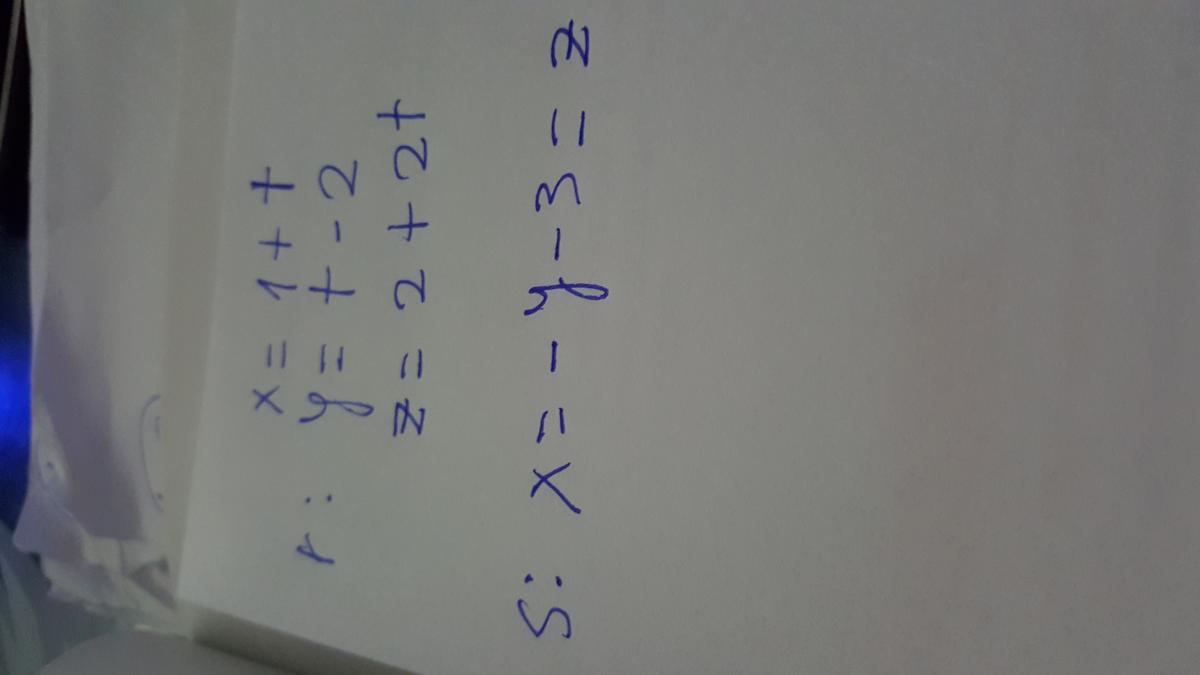 x = 1 + t
r: y = t - 2
z = 2 + 2t
S: x = - y - 3 = z